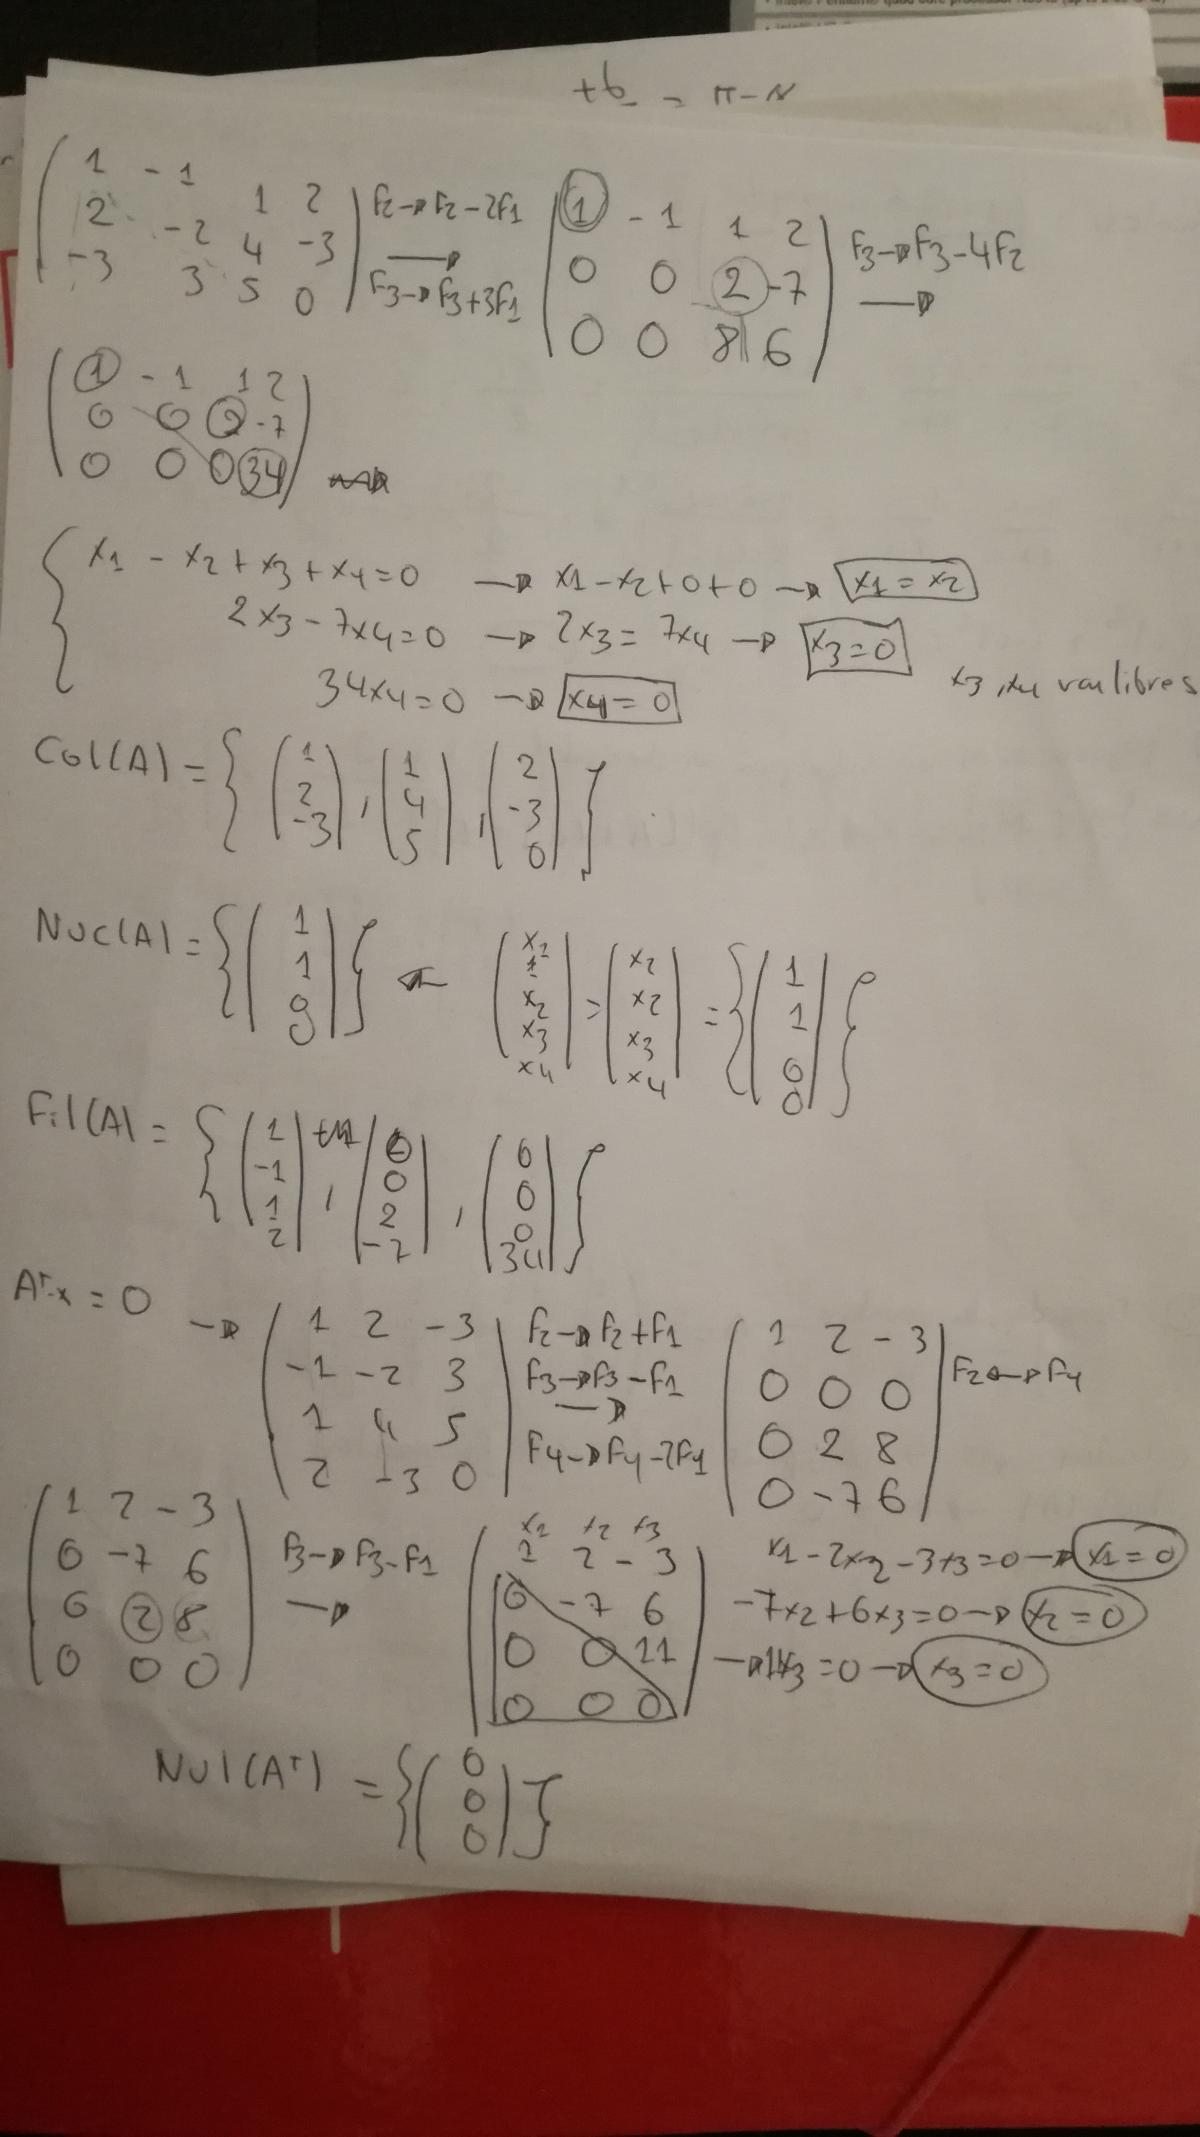 +6 = π-N
1 -1 1 2
2 -2 4 -3
-3 3 5 0
F2→F2-2F1
F3→F3+3F1
1 -1 1 2
0 0 2 -7
0 0 8 6
F3→F3-4F2
1 -1 1 2
0 0 2 -7
0 0 0 34
x1 - x2 + x3 + x4 = 0 → x1 - x2 + 0 + 0 → x1 = x2
2x3 - 7x4 = 0 → 2x3 = 7x4 → x3 = 0
34x4 = 0 → x4 = 0
x3, x4 var libres
Col(A) = { (1 2 -3), (1 4 5), (2 -3 0) }
Nuc(A) = { (1 1 0) } ← (x2 x2 x3 x4) = (x2 x2 x3 x4) = { (1 1 0 0) }
Fil(A) = { (1 -1 1 2), (0 0 2 -7), (0 0 0 34) }
Aᵀ·x = 0 →
1 2 -3
-1 -2 3
1 4 5
2 -3 0
F2→F2+F1
F3→F3-F1
F4→F4-2F1
1 2 -3
0 0 0
0 2 8
0 -7 6
F2↔F4
1 2 -3
0 -7 6
0 2 8
0 0 0
F3→F3-F1
x2 x2 x3
1 2 -3
0 -7 6
0 0 11
0 0 0
x1 - 2x2 - 3x3 = 0 → x1 = 0
-7x2 + 6x3 = 0 → x2 = 0
→ 11x3 = 0 → x3 = 0
Nul(Aᵀ) = { (0 0 0) }